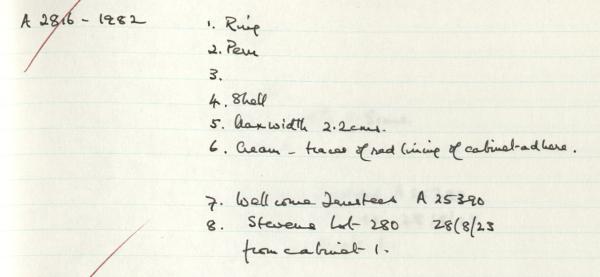 A 2816 - 1982
1. Ring
2. Peru
3.
4. Shell
5. Max width 2.2cms.
6. Cream - traces of red lining of cabinet adhere.
7. Wellcome Trustees A 25390
8. Stevens Lot 280 28/8/23
from cabinet 1.